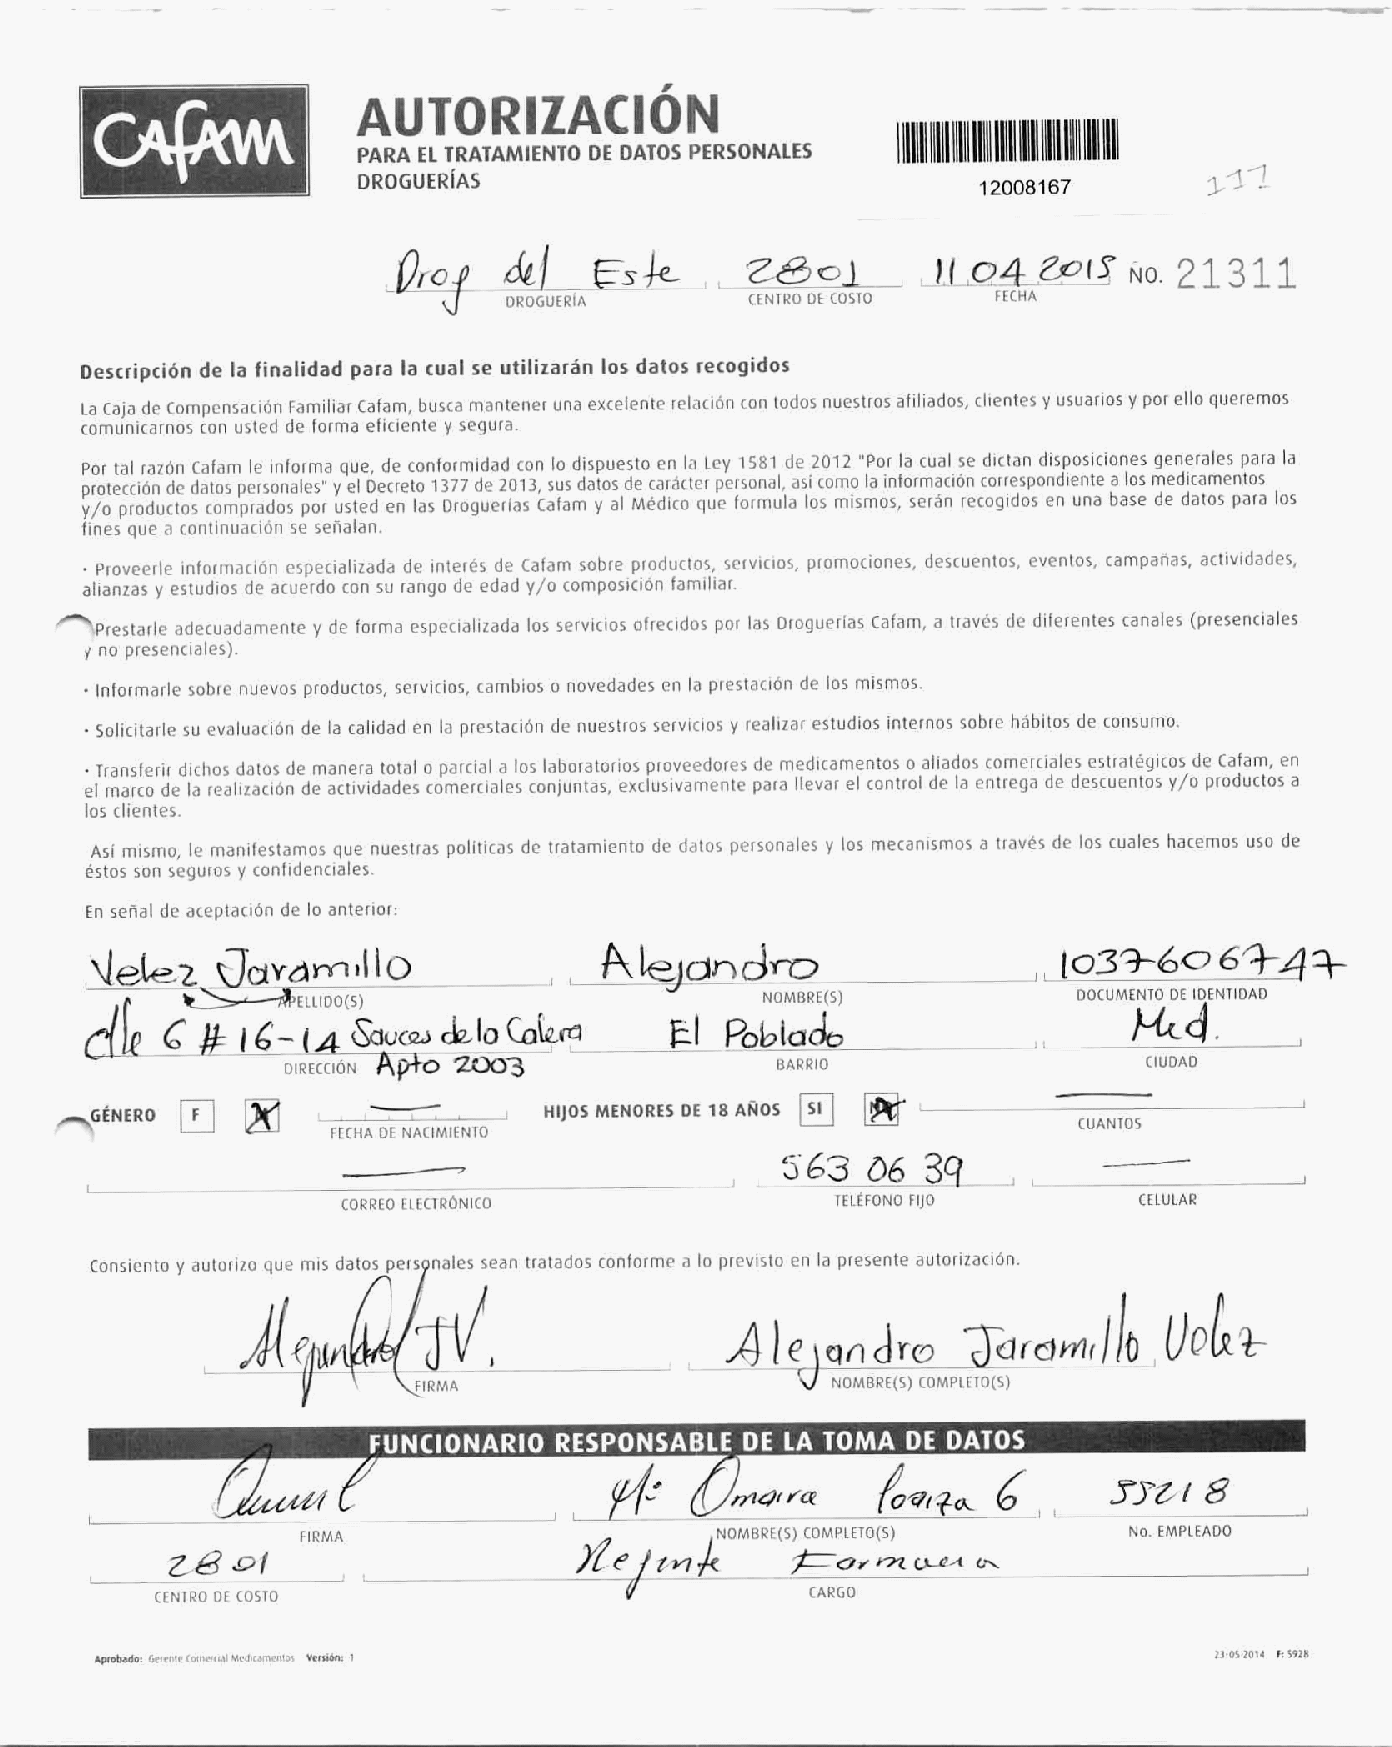 CAFAM
AUTORIZACIÓN
PARA EL TRATAMIENTO DE DATOS PERSONALES
DROGUERÍAS
12008167
111
Drog del Este 2801 11 04 2015 NO. 21311
DROGUERÍA CENTRO DE COSTO FECHA
Descripción de la finalidad para la cual se utilizarán los datos recogidos
La Caja de Compensación Familiar Cafam, busca mantener una excelente relación con todos nuestros afiliados, clientes y usuarios y por ello queremos
comunicarnos con usted de forma eficiente y segura.
Por tal razón Cafam le informa que, de conformidad con lo dispuesto en la Ley 1581 de 2012 "Por la cual se dictan disposiciones generales para la
protección de datos personales" y el Decreto 1377 de 2013, sus datos de carácter personal, así como la información correspondiente a los medicamentos
y/o productos comprados por usted en las Droguerías Cafam y al Médico que formula los mismos, serán recogidos en una base de datos para los
fines que a continuación se señalan.
· Proveerle información especializada de interés de Cafam sobre productos, servicios, promociones, descuentos, eventos, campañas, actividades,
alianzas y estudios de acuerdo con su rango de edad y/o composición familiar.
Prestarle adecuadamente y de forma especializada los servicios ofrecidos por las Droguerías Cafam, a través de diferentes canales (presenciales
y no presenciales).
· Informarle sobre nuevos productos, servicios, cambios o novedades en la prestación de los mismos.
· Solicitarle su evaluación de la calidad en la prestación de nuestros servicios y realizar estudios internos sobre hábitos de consumo.
· Transferir dichos datos de manera total o parcial a los laboratorios proveedores de medicamentos o aliados comerciales estratégicos de Cafam, en
el marco de la realización de actividades comerciales conjuntas, exclusivamente para llevar el control de la entrega de descuentos y/o productos a
los clientes.
Así mismo, le manifestamos que nuestras políticas de tratamiento de datos personales y los mecanismos a través de los cuales hacemos uso de
éstos son seguros y confidenciales.
En señal de aceptación de lo anterior:
Velez Jaramillo Alejandro 1037606747
APELLIDO(S) NOMBRE(S) DOCUMENTO DE IDENTIDAD
clle 6 # 16-14 Sauces de la Calera El Poblado Med.
DIRECCIÓN Apto 2003 BARRIO CIUDAD
GÉNERO F HIJOS MENORES DE 18 AÑOS SI
FECHA DE NACIMIENTO CUANTOS
563 06 39
CORREO ELECTRÓNICO TELÉFONO FIJO CELULAR
Consiento y autorizo que mis datos personales sean tratados conforme a lo previsto en la presente autorización.
Alejandro JV. Alejandro Jaramillo Velez
FIRMA NOMBRE(S) COMPLETO(S)
FUNCIONARIO RESPONSABLE DE LA TOMA DE DATOS
Mª Omaira Loaiza G 55218
FIRMA NOMBRE(S) COMPLETO(S) No. EMPLEADO
2801 Regente Farmacia
CENTRO DE COSTO CARGO
Aprobado: Gerente Comercial Medicamentos Versión: 1 23-05-2014 F: 5928